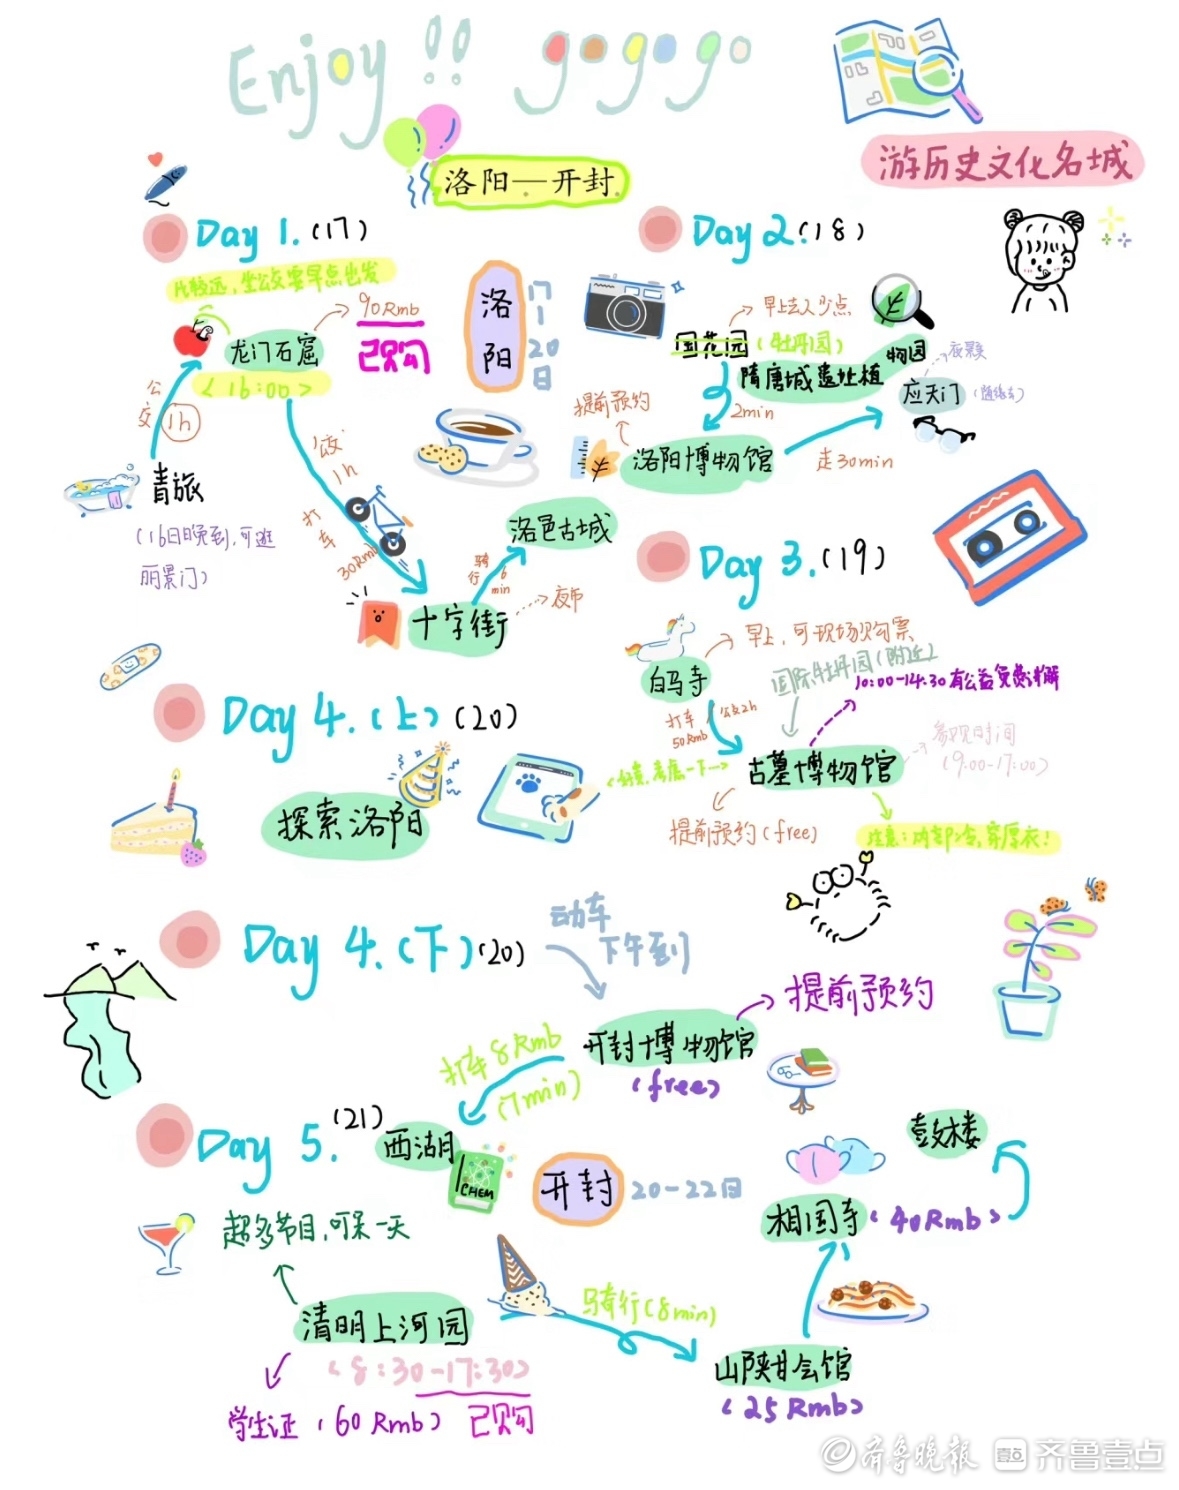 Enjoy!! gogogo
游历史文化名城
洛阳—开封
Day 1.(17)
比较远,坐公交要早点出发
90Rmb
已购
龙门石窟
(16:00)
公交
1h
青旅
(16日晚到,可逛
丽景门)
公交
1h
打车
30Rmb
十字街
夜市
骑行
6min
洛邑古城
洛阳
17-20日
Day 2.(18)
早上去人少点
国花园(牡丹园)
隋唐城遗址植物园
2min
提前预约
洛阳博物馆
走30min
应天门
夜景
(随缘去)
Day 3.(19)
早上,可现场购票
白马寺
打车
50Rmb
公交2h
国际牡丹园(附近)
10:00-14:30有公益免费讲解
古墓博物馆
参观时间
(9:00-17:00)
考虑一下
提前预约(free)
注意:内部冷,穿厚衣!
Day 4.(上)(20)
探索洛阳
Day 4.(下)(20)
动车
下午到
开封博物馆
(free)
提前预约
打车8Rmb
(7min)
西湖
CHEM
Day 5.(21)
开封
20-22日
超多节目,可呆一天
清明上河园
(8:30-17:30)
学生证(60Rmb)
已购
骑行(8min)
山陕甘会馆
(25Rmb)
相国寺(40Rmb)
鼓楼
齐鲁晚报
壹点
齐鲁壹点